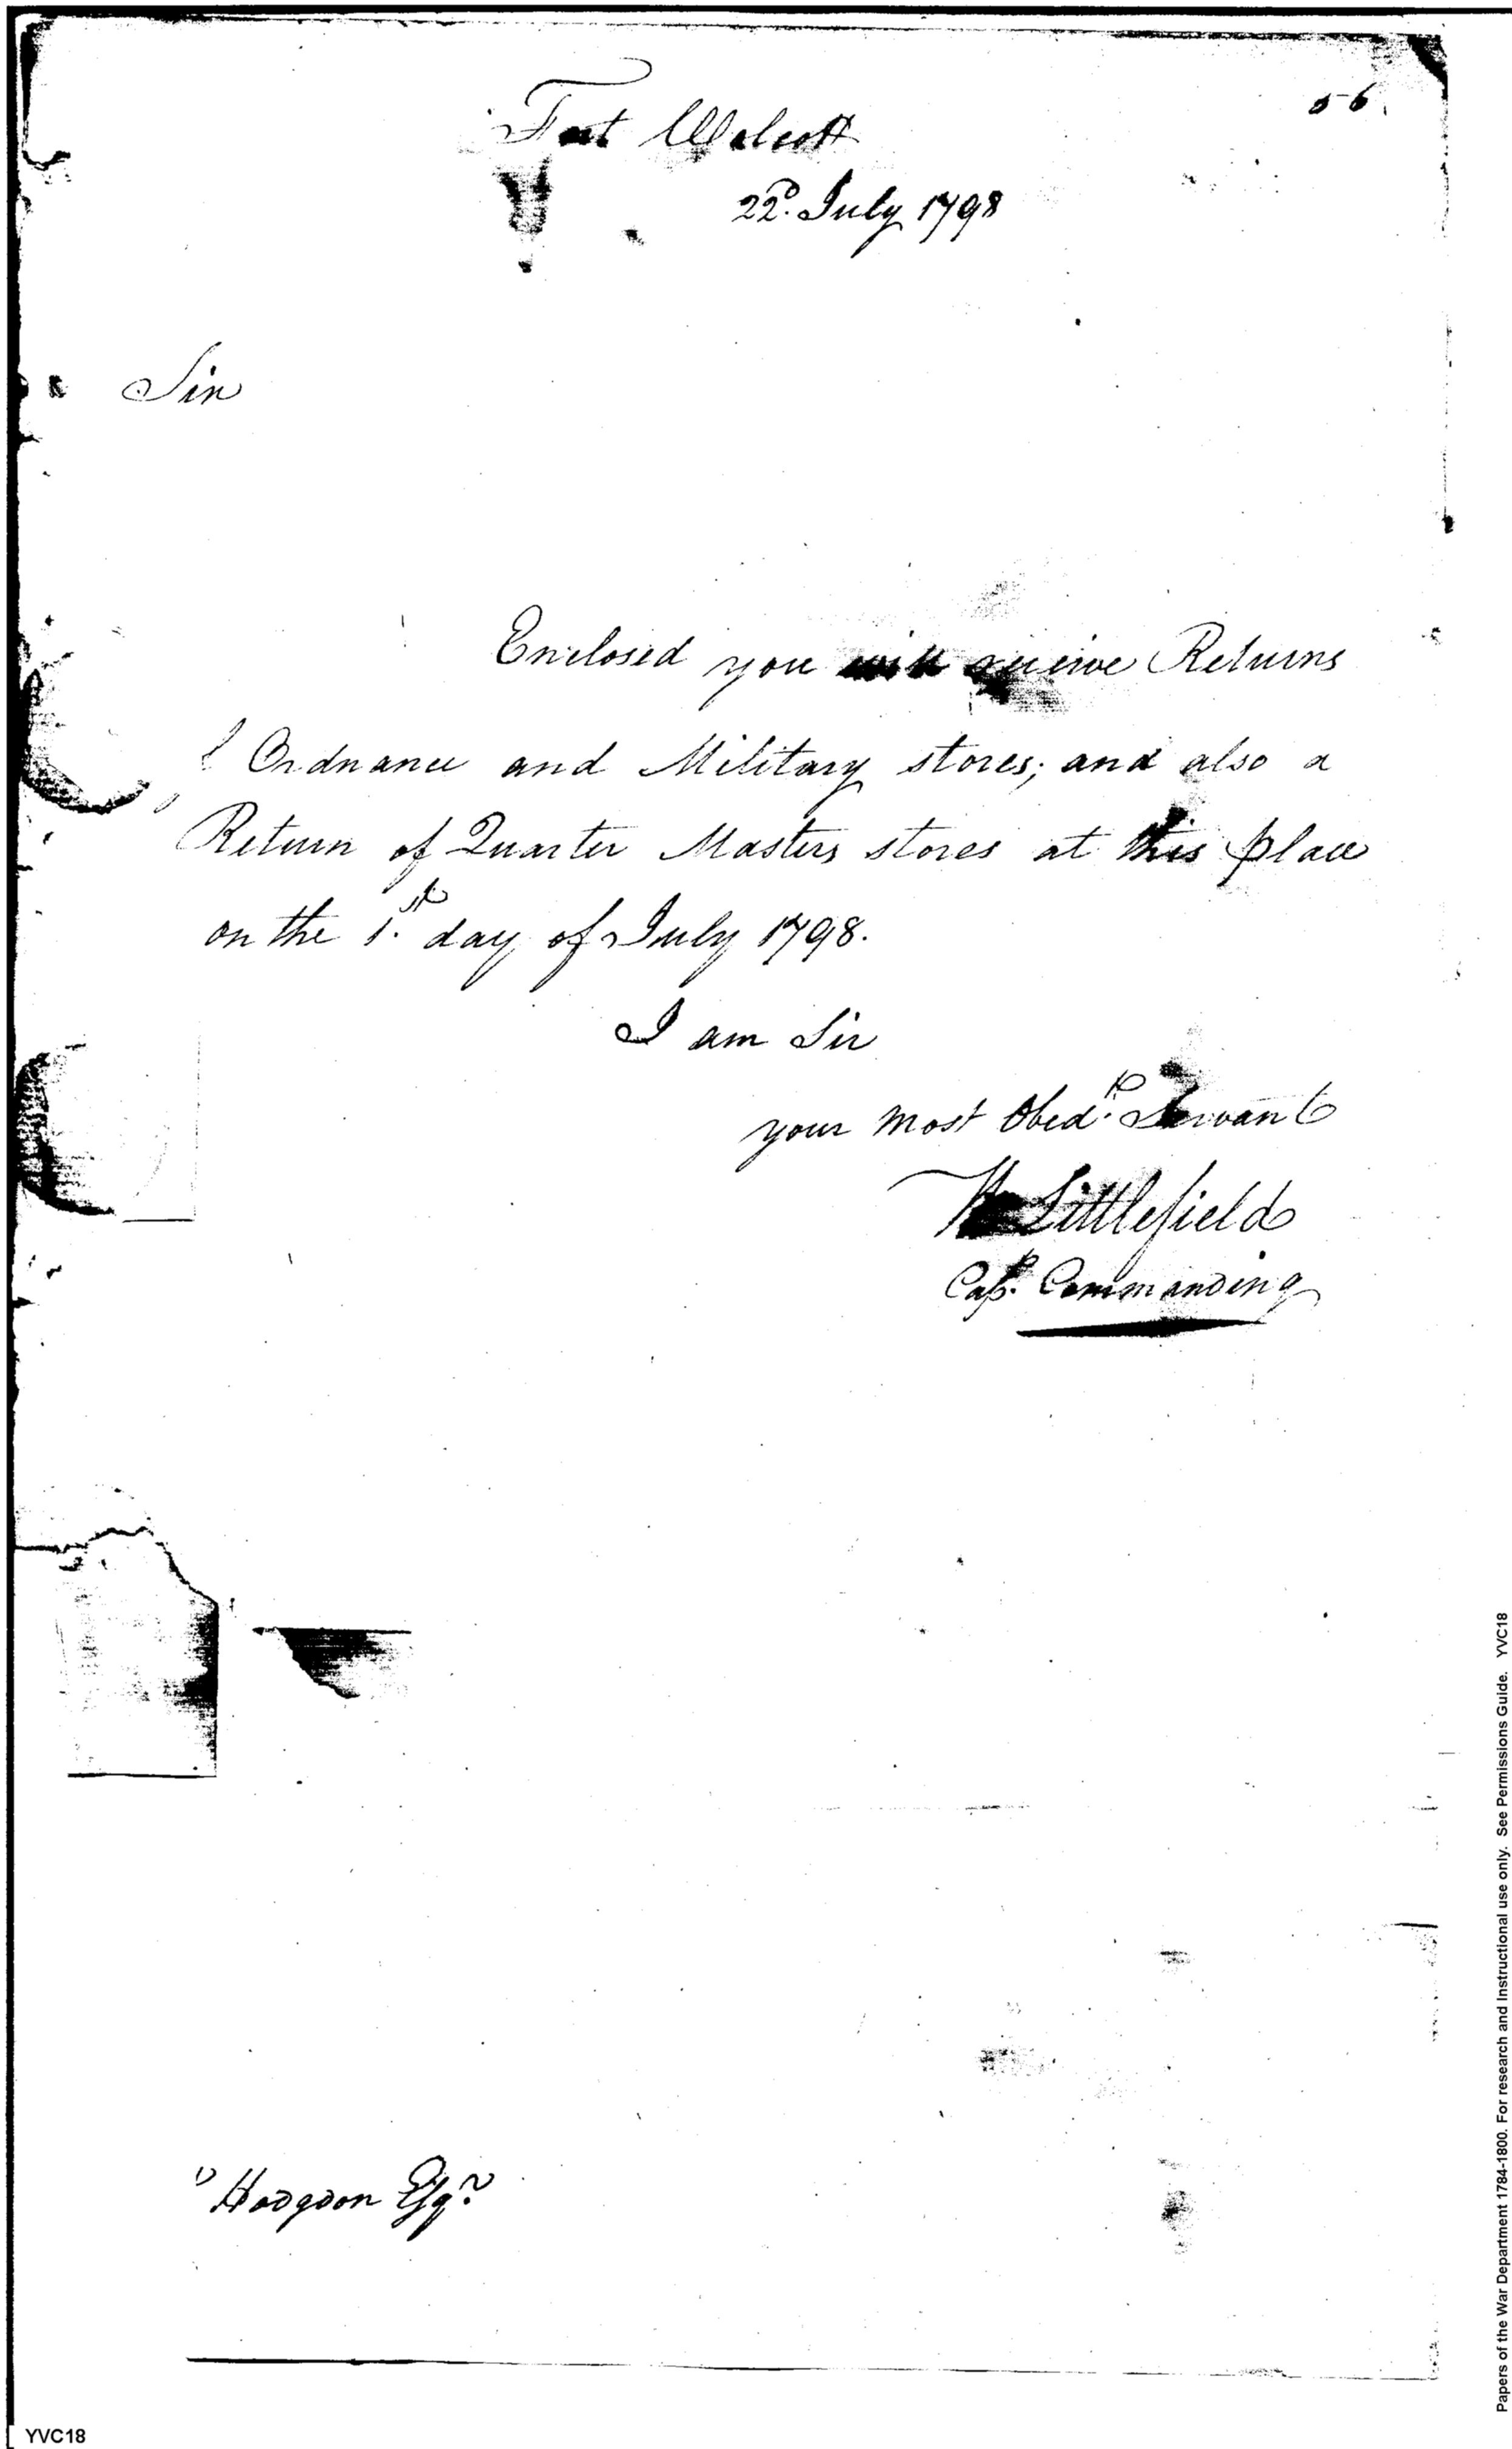 56.
Fort Wolcott
22d. July 1798
Sir
Enclosed you will receive Returns
Ordnance and Military stores; and also a
Return of Quarter Masters stores at this place
on the 1st. day of July 1798.
I am Sir
your most Obedt. Servant
W Littlefield
Capt. Commanding
Hodgdon Esqr.
YVC18
Papers of the War Department 1784-1800. For research and Instructional use only. See Permissions Guide. YVC18